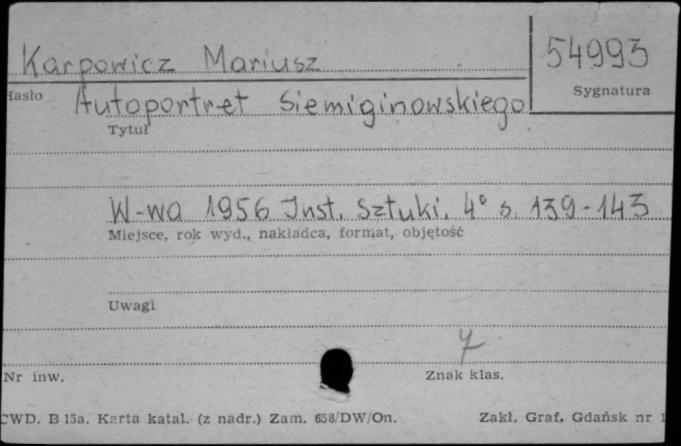 Karpowicz Mariusz
54993
Hasło
Sygnatura
Autoportret Siemiginowskiego
Tytuł
W-wa 1956 Inst. Sztuki. 4° s. 139-143
Miejsce, rok wyd., nakładca, format, objętość
Uwagi
7
Nr inw.
Znak klas.
CWD. B 15a. Karta katal. (z nadr.) Zam. 658/DW/On.
Zakł. Graf. Gdańsk nr 1